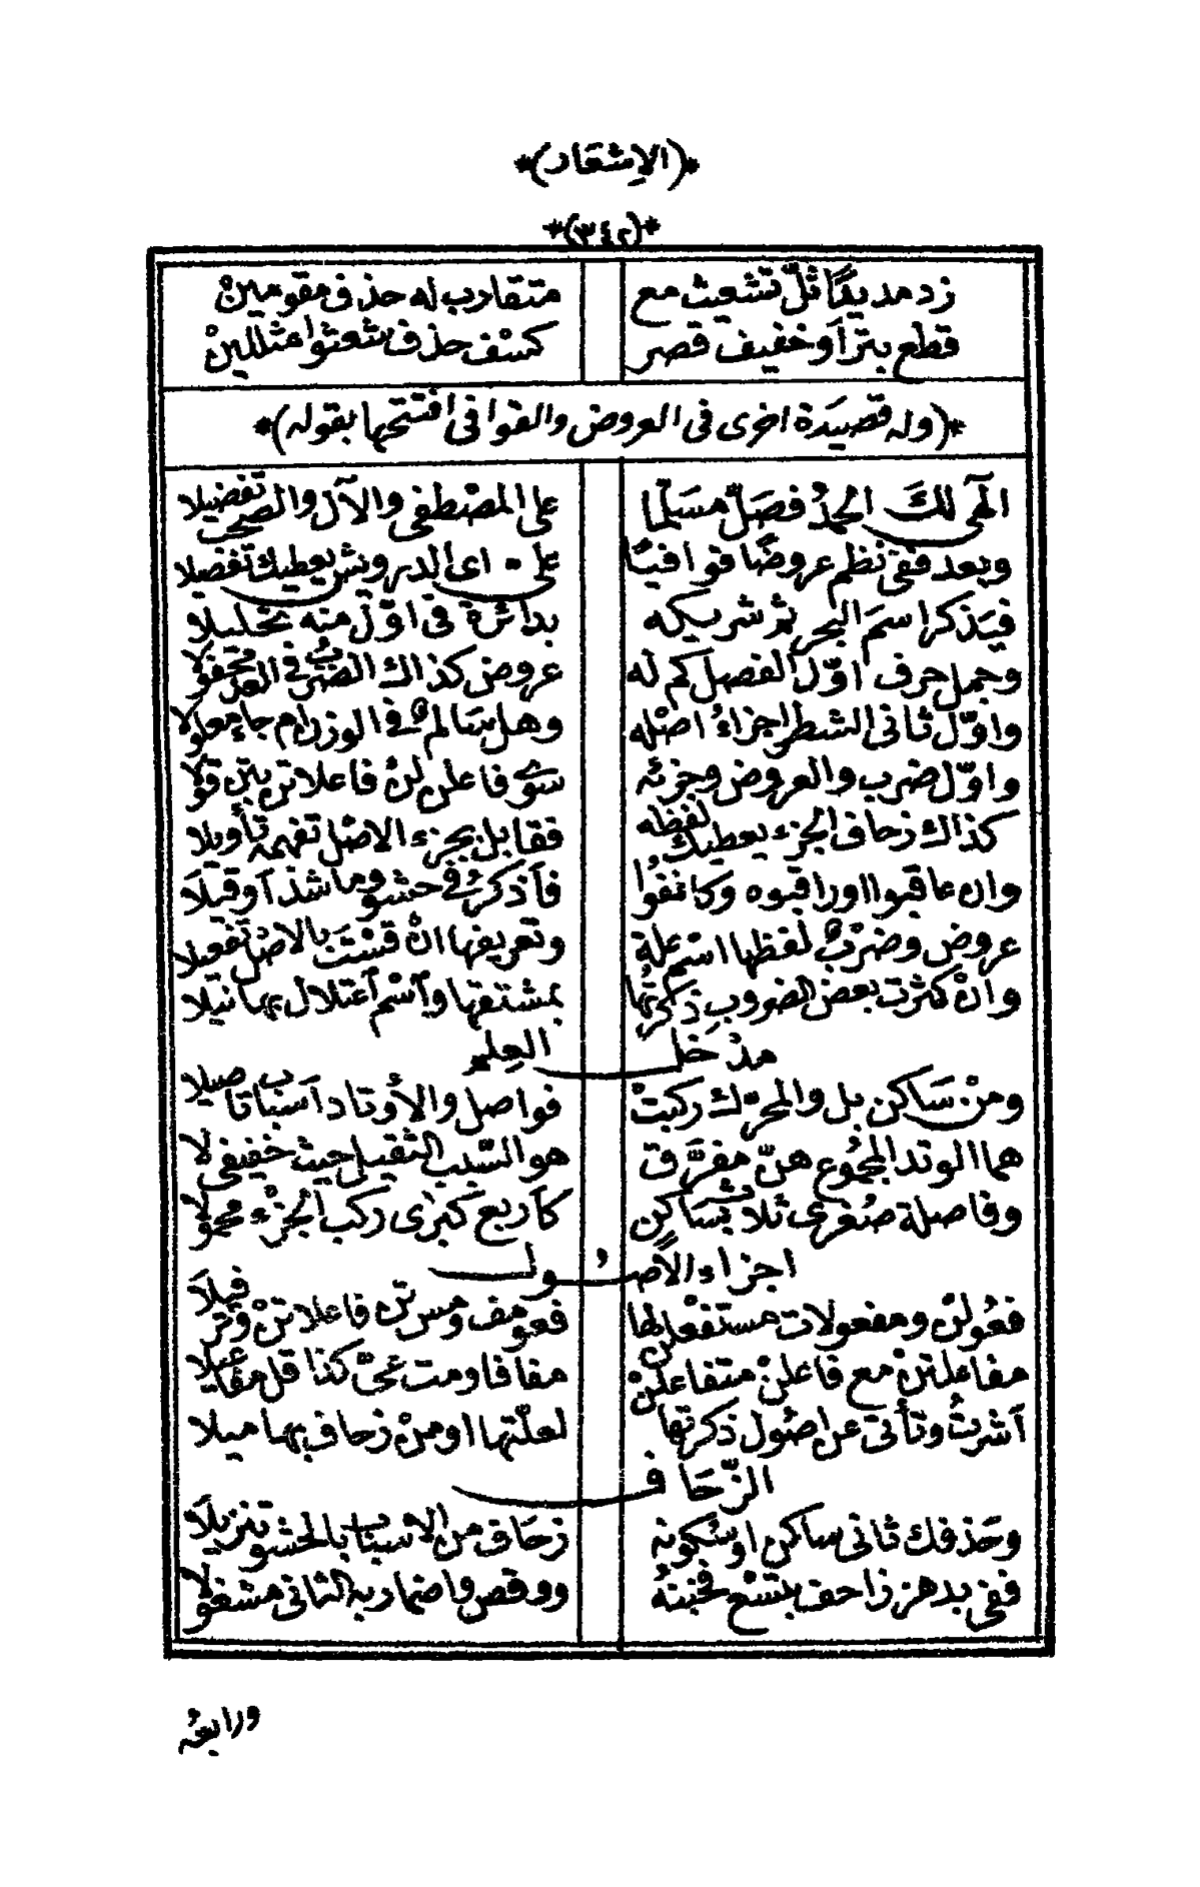 *(الإشعار)*
*(٣٤٢)*
زد مديدًا ثلّ تشعيث مع متقارب له حذف مقومين
قطع بترا وخفيف قصر كسف حذف شعثوا مثللين
*(وله قصيدة اخرى فى العروض والقوافى افتتحها بقوله)*
الٓهى لك الحمدُ فصَلّ مسَلّما على المصْطفى والآل والصحب تفضيلا
وبعد ففى نظم عروضًا قوافيًا على اى الدر ونش يعطيك تفصيلا
فيَذكر اسم البحر ثم شريكه بدائرة فى اوّل منه تحليلا
وجمل حرف اوّل الفصل كم له عروض كذاك الضرب فى العد تحقولا
واوّل ثانى الشطر اجزاءُ اصْله وهل سَالمٌ فى الوزن ام جاء معلولا
واوّل ضرب والعروض وجزئه سوى فاعلن لنْ فاعلاتن بتن قولا
كذاك زحاف الجزء يعطيك لفظه فقابل بجزء الاصْل تفهمه تأويلا
وان عاقبوا اوراقبوه وكانفوا فاَذكرُ فى حشو وما شذ اَوقيلَا
عروض وضرْبٌ لفظها اسْم علة وتعريفها انْ قسْتَ بالاصْل تفعيلا
وانْ كثرت بعض الضروبِ ذكرتُها بمشتقها واَسْم اَعتلال بها نيلا
مدْخل العِلم
ومنْ سَاكن بل والمحرّك ركبتْ فواصل والأوتاد اَسبابَ تاصيلا
هما الوتد المجُموع هنّ مفرَّق هو السّبب الثقيل حيث خفيفى لا
وفاصلة صُغرى ثلاث بسَاكن كأربع كبرٰى ركب الجزْء محمولا
اجزاء الأصُول
فعُولنْ ومفعولات مستفْعلن لها فعو مف ومس تن فاعلاتنْ وخر فيلَا
مفاعلتنْ مع فاعلنْ متفاعلنْ مفا فا ومت عىّ كذا قل مفاعيلا
اَشرتُ وتأتى عن اصُول ذكرتها لعلّتها او منْ زحاف بها ميلا
الزّحَاف
وحَذفك ثانى ساكن اوسُكونه زحَاف من الاسْباب بالحشو تنزيلَا
ففى بدهز زاحف بتسْع فخبنهُ ووقص واضمار به الثانى مشغولا
ورابعُه